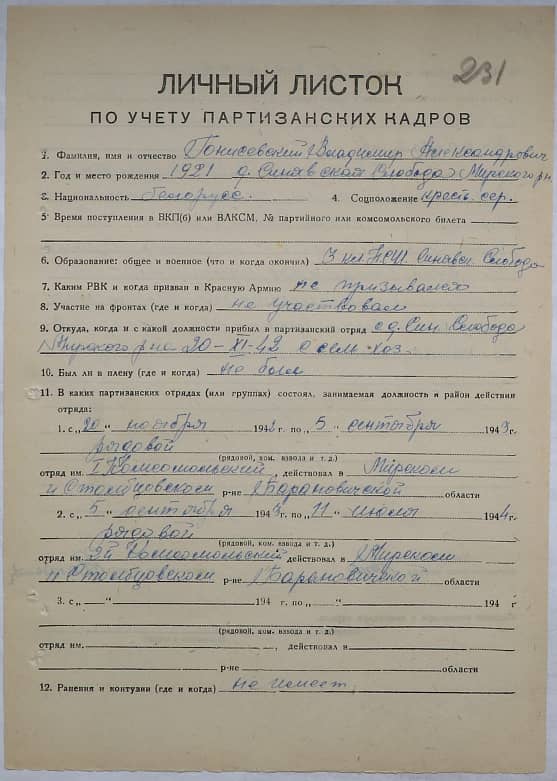 231
ЛИЧНЫЙ ЛИСТОК
ПО УЧЕТУ ПАРТИЗАНСКИХ КАДРОВ
1. Фамилия, имя и отчество Владимир Александрович
2. Год и место рождения 1921 д. Синявская Слобода Мирского рн
3. Национальность белорус. 4. Соцположение крест. сер.
5. Время поступления в ВКП(б) или ВЛКСМ, № партийного или комсомольского билета
6. Образование: общее и военное (что и когда окончил) 3 кл НСШ Синявс. Слобода
7. Каким РВК и когда призван в Красную Армию не призывался
8. Участие на фронтах (где и когда) не участвовал
9. Откуда, когда и с какой должности прибыл в партизанский отряд с д. Син. Слобода
Мирского р-на 20-XI-42 с сель-хоз.
10. Был ли в плену (где и когда) не был
11. В каких партизанских отрядах (или группах) состоял, занимаемая должность и район действия
отряда:
1. с „20“ ноября 1942 г. по „5“ сентября 1943 г.
рядовой
(рядовой, ком. взвода и т. д.)
отряд им. I Комсомольский, действовал в Мирском
и Столбцовском р-не Барановичской области
2. с „5“ сентября 1943 г. по „11“ июля 1944 г.
рядовой
(рядовой, ком. взвода и т. д.)
отряд им. 2й Комсомольский действовал в Мирском
и Столбцовском р-не Барановичской области
3. с „ “ 194 г. по „ “ 194 г
(рядовой, ком. взвода и т. д.)
отряд им. , действовал в
р-не области
12. Ранения и контузии (где и когда) не имеет